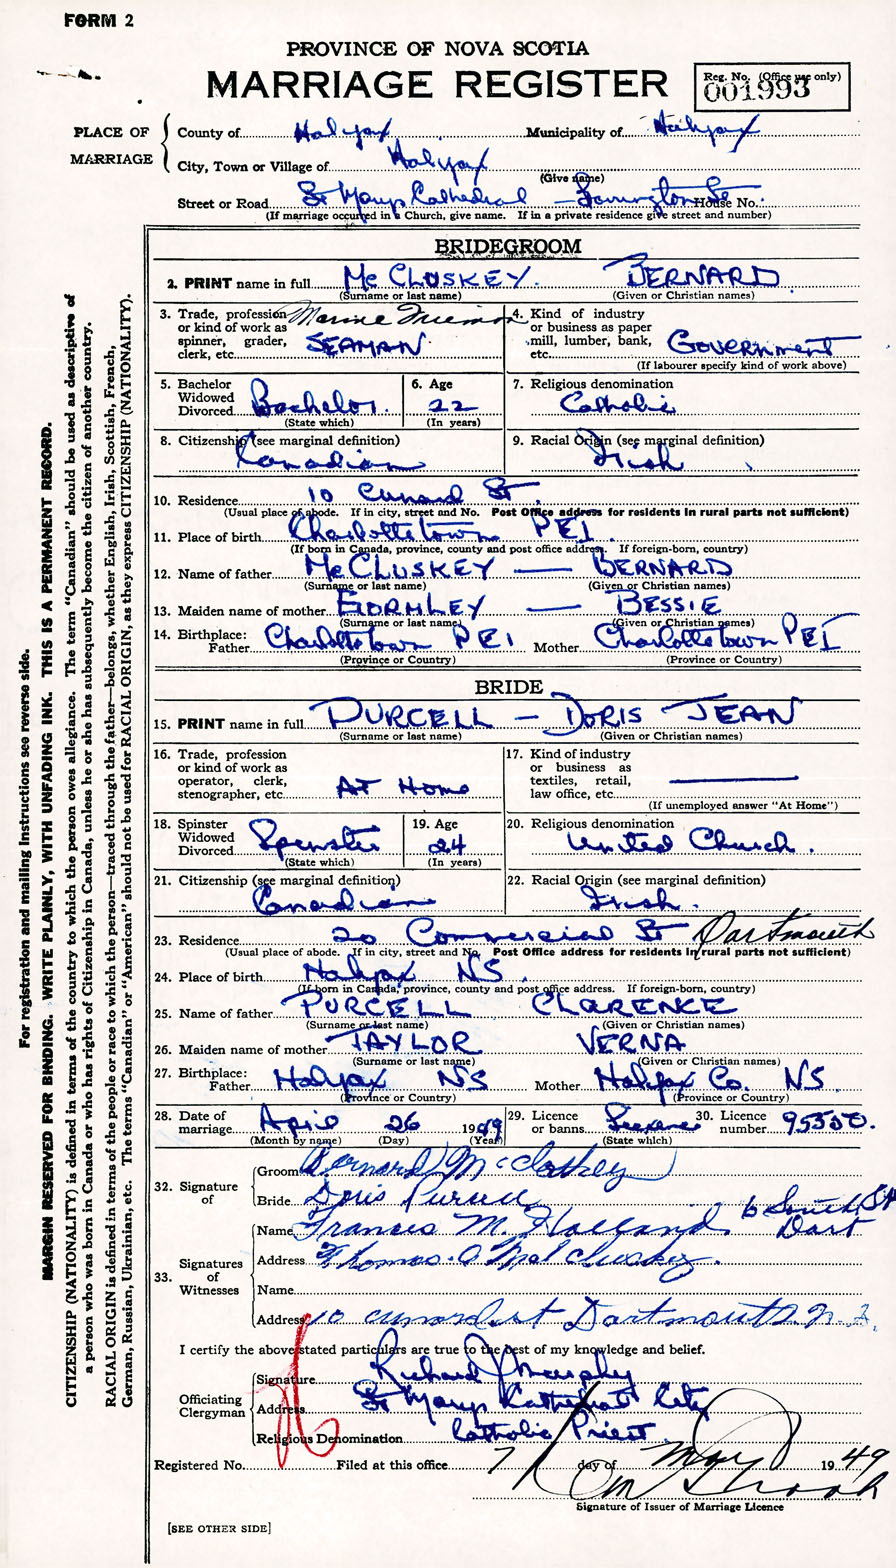 FORM 2
PROVINCE OF NOVA SCOTIA
MARRIAGE REGISTER
Reg. No. (Office use only)
001993
PLACE OF MARRIAGE
County of Halifax Municipality of Halifax
City, Town or Village of Halifax
(Give name)
Street or Road St Marys Cathedral – Barrington St House No.
(If marriage occurred in a Church, give name. If in a private residence give street and number)
BRIDEGROOM
2. PRINT name in full McCLUSKEY. BERNARD
(Surname or last name) (Given or Christian names)
3. Trade, profession or kind of work as spinner, grader, clerk, etc. Marine Fireman SEAMAN
4. Kind of industry or business as paper mill, lumber, bank, etc. GOVERNMENT
(If labourer specify kind of work above)
5. Bachelor Widowed Divorced Bachelor.
(State which)
6. Age 22
(In years)
7. Religious denomination Catholic
8. Citizenship (see marginal definition) Canadian
9. Racial Origin (see marginal definition) Irish
10. Residence 10 Cunard St.
(Usual place of abode. If in city, street and No. Post Office address for residents in rural parts not sufficient)
11. Place of birth Charlottetown PEI.
(If born in Canada, province, county and post office address. If foreign-born, country)
12. Name of father McCLUSKEY — BERNARD
(Surname or last name) (Given or Christian names)
13. Maiden name of mother GORMLEY — BESSIE
(Surname or last name) (Given or Christian names)
14. Birthplace: Father Charlottetown PEI Mother Charlottetown PEI
(Province or Country) (Province or Country)
BRIDE
15. PRINT name in full PURCELL – DORIS JEAN
(Surname or last name) (Given or Christian names)
16. Trade, profession or kind of work as operator, clerk, stenographer, etc. AT Home
17. Kind of industry or business as textiles, retail, law office, etc. ———
(If unemployed answer "At Home")
18. Spinster Widowed Divorced Spinster
(State which)
19. Age 24
(In years)
20. Religious denomination United Church.
21. Citizenship (see marginal definition) Canadian
22. Racial Origin (see marginal definition) Irish.
23. Residence 20 Commercial St Dartmouth
(Usual place of abode. If in city, street and No. Post Office address for residents in rural parts not sufficient)
24. Place of birth Halifax NS.
(If born in Canada, province, county and post office address. If foreign-born, country)
25. Name of father PURCELL CLARENCE
(Surname or last name) (Given or Christian names)
26. Maiden name of mother TAYLOR VERNA
(Surname or last name) (Given or Christian names)
27. Birthplace: Father Halifax NS Mother Halifax Co. NS.
(Province or Country) (Province or Country)
28. Date of marriage April 26 1949
(Month by name) (Day) (Year)
29. Licence or banns License
(State which)
30. Licence number 95350.
32. Signature of
Groom Bernard McCloskey
Bride Doris Purcell
33. Signatures of Witnesses
Name Frances M. Holland. 6 Smith St Dart
Address Thomas
Name
Address 10 cunard st Dartmouth N.S.
I certify the above stated particulars are true to the best of my knowledge and belief.
Officiating Clergyman
Signature Richard J Murphy
Address St Marys Cathedral City
Religious Denomination Catholic Priest.
Registered No. Filed at this office 7 day of May 1949
Signature of Issuer of Marriage Licence
[SEE OTHER SIDE]
For registration and mailing instructions see reverse side.
MARGIN RESERVED FOR BINDING. WRITE PLAINLY, WITH UNFADING INK. THIS IS A PERMANENT RECORD.
CITIZENSHIP (NATIONALITY) is defined in terms of the country to which the person owes allegiance. The term "Canadian" should be used as descriptive of
a person who was born in Canada or who has rights of Citizenship in Canada, unless he or she has subsequently become the citizen of another country.
RACIAL ORIGIN is defined in terms of the people or race to which the person—traced through the father—belongs, whether English, Irish, Scottish, French,
German, Russian, Ukrainian, etc. The terms "Canadian" or "American" should not be used for RACIAL ORIGIN, as they express CITIZENSHIP (NATIONALITY).